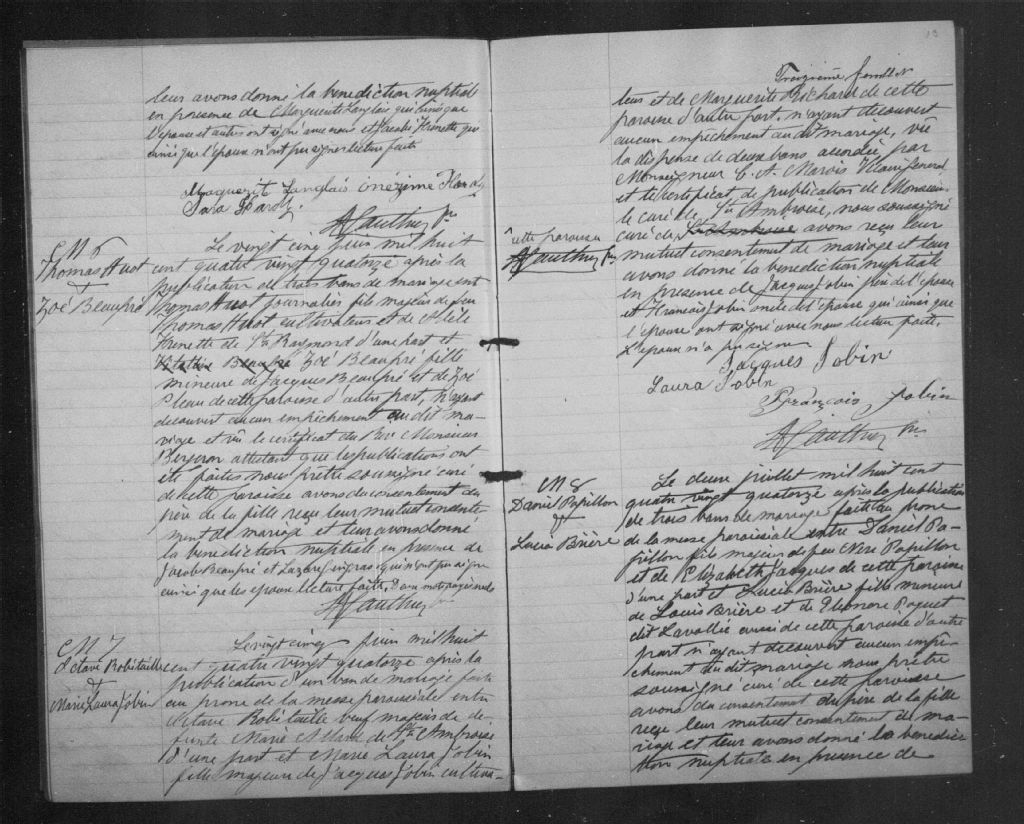 leur avons donné la benediction nuptiale
en presence de Marguerite Langlais qui ainsi que
l'epouse et autres ont signé avec nous et Jacob Frenette qui
ainsi que l'epoux n'ont pu signer lecture faite
Marguerit Langlais Onézime
Sara
A Gauthier Ptre
M 6
Thomas Huot
&
Zoé Beaupré
Le vingt cinq juin mil huit
cent quatre vingt quatorze après la
publication de trois bans de mariage entre
Thomas Huot journalier fils majeur de feu
Thomas Huot cultivateur et de Adèle
Frenette de St Raymond d'une part et
Beaupré Zoé Beaupré fille
mineure de Jacques Beaupré et de Zoé
Pleau de cette paroisse d'autre part, n'ayant
decouvert aucun empêchement au dit ma-
riage et vu le certificat du Rev Monsieur
Bergeron attestant que les publications ont
été faites nous prêtre soussigné curé
de cette paroisse avons du consentement du
père de la fille reçu leur mutuel consente
ment de mariage et leur avons donné
la benediction nuptiale en presence de
Jacob Beaupré et Lazare Gingras qui n'ont pu signer
ainsi que les epoux lecture faite. mots rayés nuls
A Gauthier Ptre
M 7
Octave Robitaille
&
Marie Laura Jobin
Le vingt cinq juin mil huit
cent quatre vingt quatorze après la
publication d'un ban de mariage faite
au prone de la messe paroissiale entre
Octave Robitaille veuf majeur de de-
funte Marie de St Ambroise
d'une part et Marie Laura Jobin
fille majeure de Jacques Jobin cultiva-
13
Troizième feuillet
teur et de Marguerite Richard de cette
paroisse d'autre part, n'ayant decouvert
aucun empêchement au dit mariage, vu
la dispense de deux bans accordée par
Monseigneur C. A. Marois Vicaire General
et le certificat de publication de Monsieur
le curé de St Ambroise, nous soussigné
curé de avons reçu leur
mutuel consentement de mariage et leur
avons donné la benediction nuptiale
en presence de Jacques Jobin père de l'epouse
et Francois Jobin oncle de l'epouse qui ainsi que
l'epouse ont signé avec nous lecture faite.
L'epoux n'a pu signer
cette paroisse
A Gauthier Ptre
Jacques Jobin
Laura Jobin
François Jobin
A Gauthier Ptre
M 8
Daniel Papillon
&
Lucia Brière
Le deux juillet mil huit cent
quatre vingt quatorze après la publication
de trois bans de mariage faite au prone
de la messe paroissiale entre Daniel Pa-
pillon fils majeur de feu Néré Papillon
et de Elizabeth Jacques de cette paroisse
d'une part et Lucia Brière fille mineure
de Louis Brière et de Eleonore Paquet
dit Lavallée aussi de cette paroisse d'autre
part n'ayant decouvert aucun empê-
chement au dit mariage nous prêtre
soussigné curé de cette paroisse
avons du consentement du père de la fille
reçu leur mutuel consentement de ma-
riage et leur avons donné la benedic
tion nuptiale en presence de